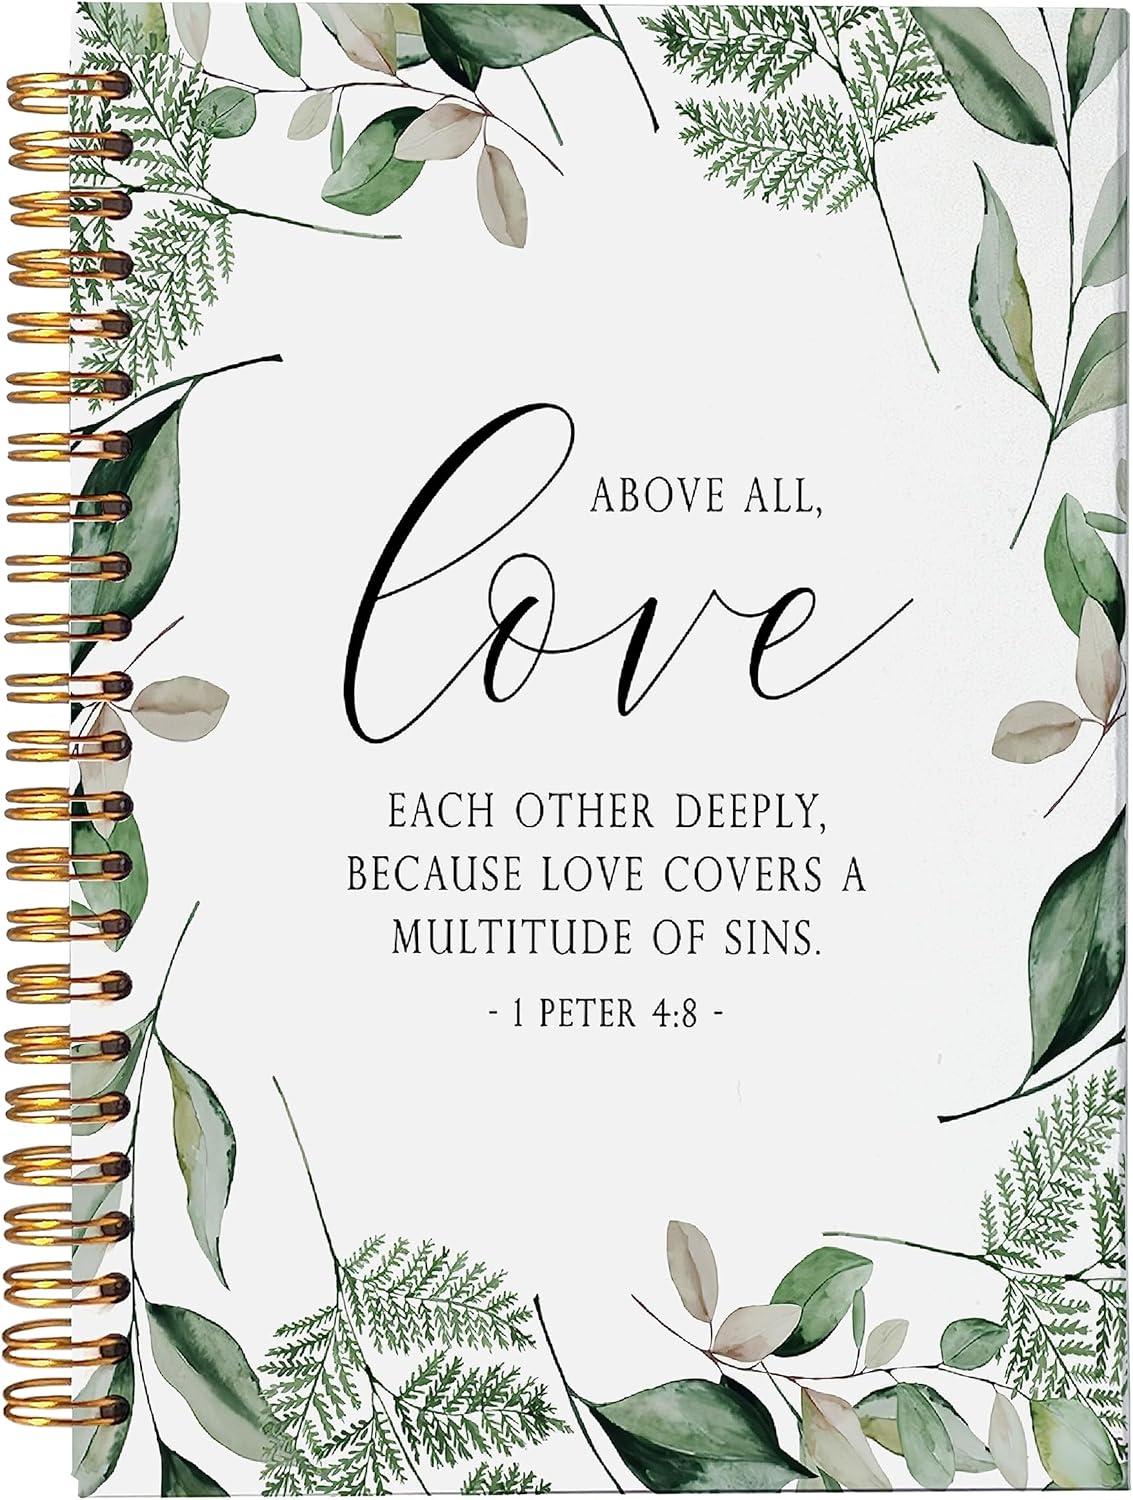 ABOVE ALL,
love
EACH OTHER DEEPLY,
BECAUSE LOVE COVERS A
MULTITUDE OF SINS.
- 1 PETER 4:8 -